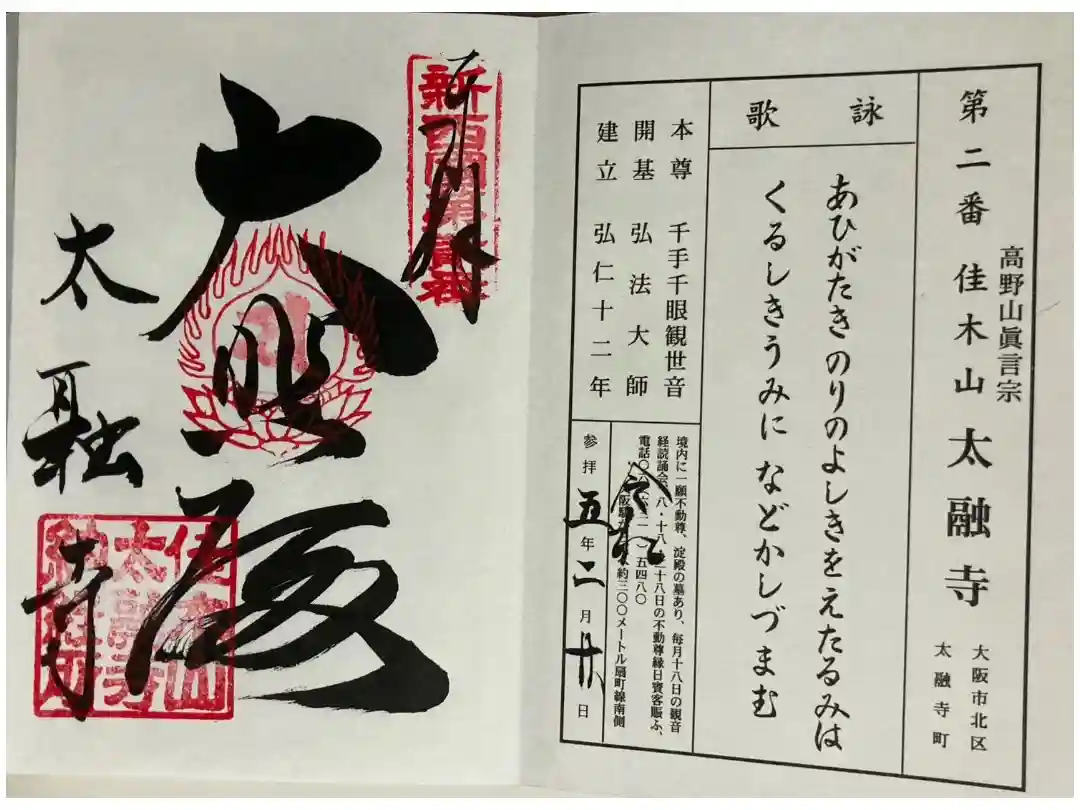 高野山眞言宗
第二番 佳木山 太融寺
大阪市北区
太融寺町
詠歌
あひがたき のりのよしきをえたるみは
くるしきうみに などかしづまむ
本尊 千手千眼観世音
開基 弘法大師
建立 弘仁十二年
境内に一願不動尊、淀殿の墓あり、毎月十八日の観音
経読誦会、八・十八・二十八日の不動尊縁日賽客賑ふ、
約三〇〇メートル扇町線南側
令和
参拝 五年二月廿日
奉拝
大悲殿
太融寺
佳木山
太融寺
納経所